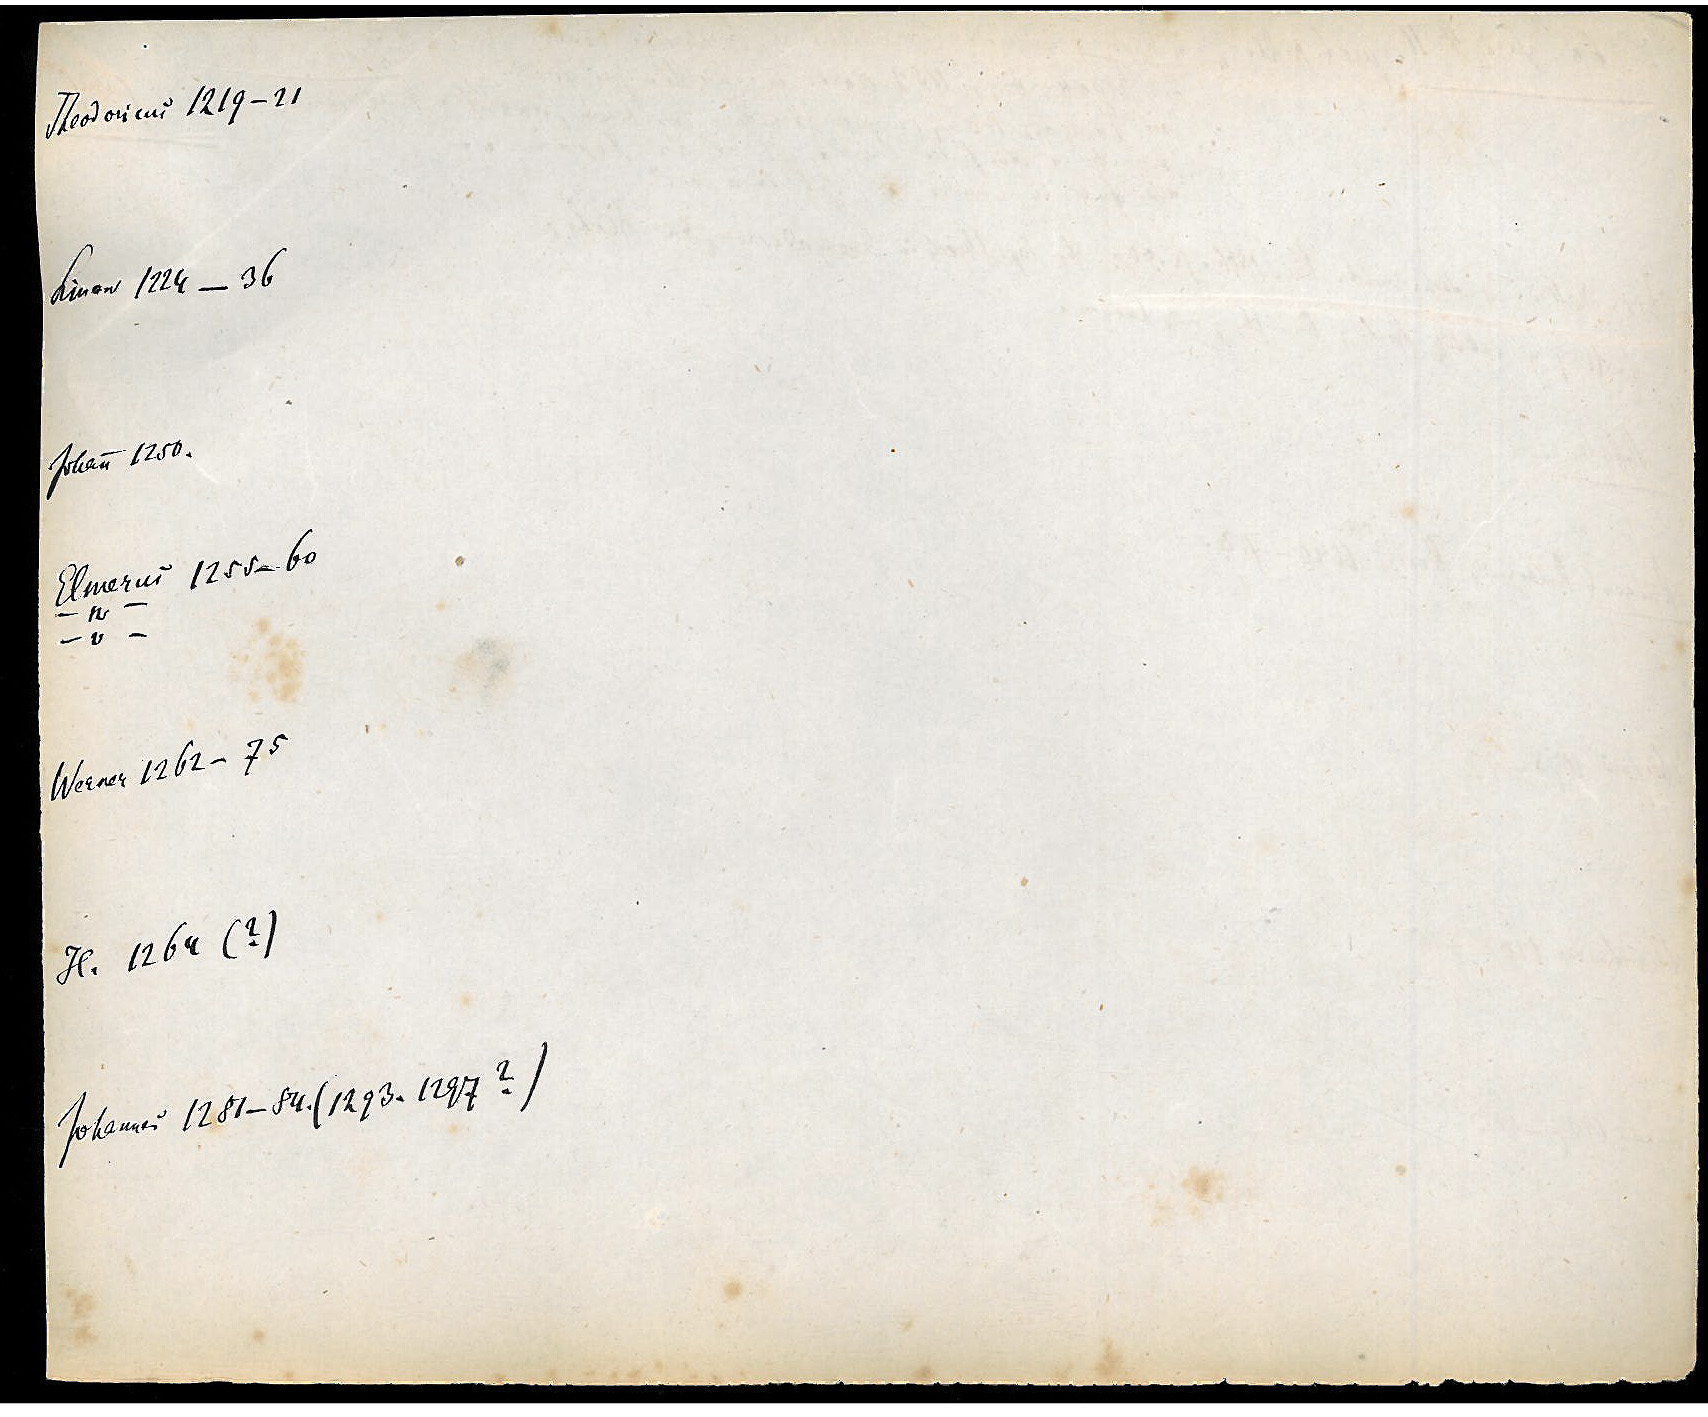 Theodoricus 1219–21
1224 – 36
Johan̄ 1250.
Elmerus 1255–60
– n –
– v –
Werner 1262– 75
H. 1264 (?)
Johannes 1281–84. (1293. 1297 ?)